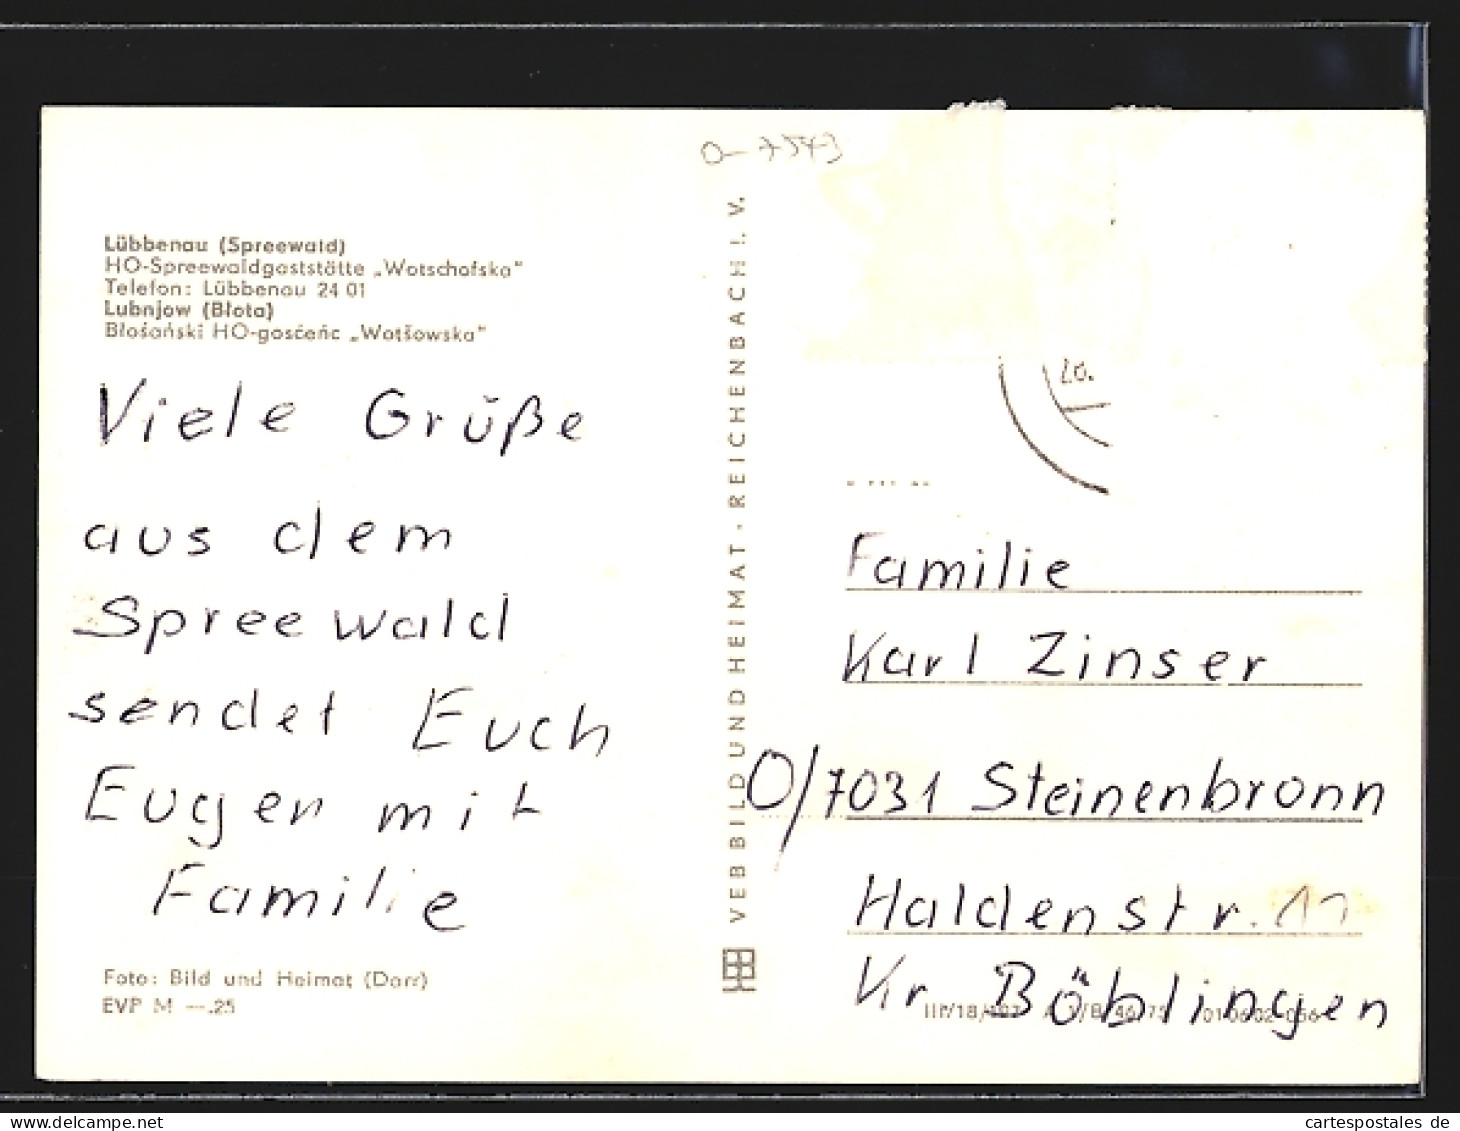 O-7543
Lübbenau (Spreewald)
HO-Spreewaldgaststätte „Wotschofska"
Telefon: Lübbenau 24 01
Lubnjow (Błota)
Błośański HO-gosćeńc „Wotšowska"
Viele Grüße
aus dem
Spreewald
sendet Euch
Eugen mit
Familie
Foto: Bild und Heimat (Darr)
EVP M —.25
VEB BILD UND HEIMAT · REICHENBACH I. V.
20.
Familie
Karl Zinser
O/7031 Steinenbronn
Haldenstr. 11
Kr Böblingen
III/18/
cartespostales de